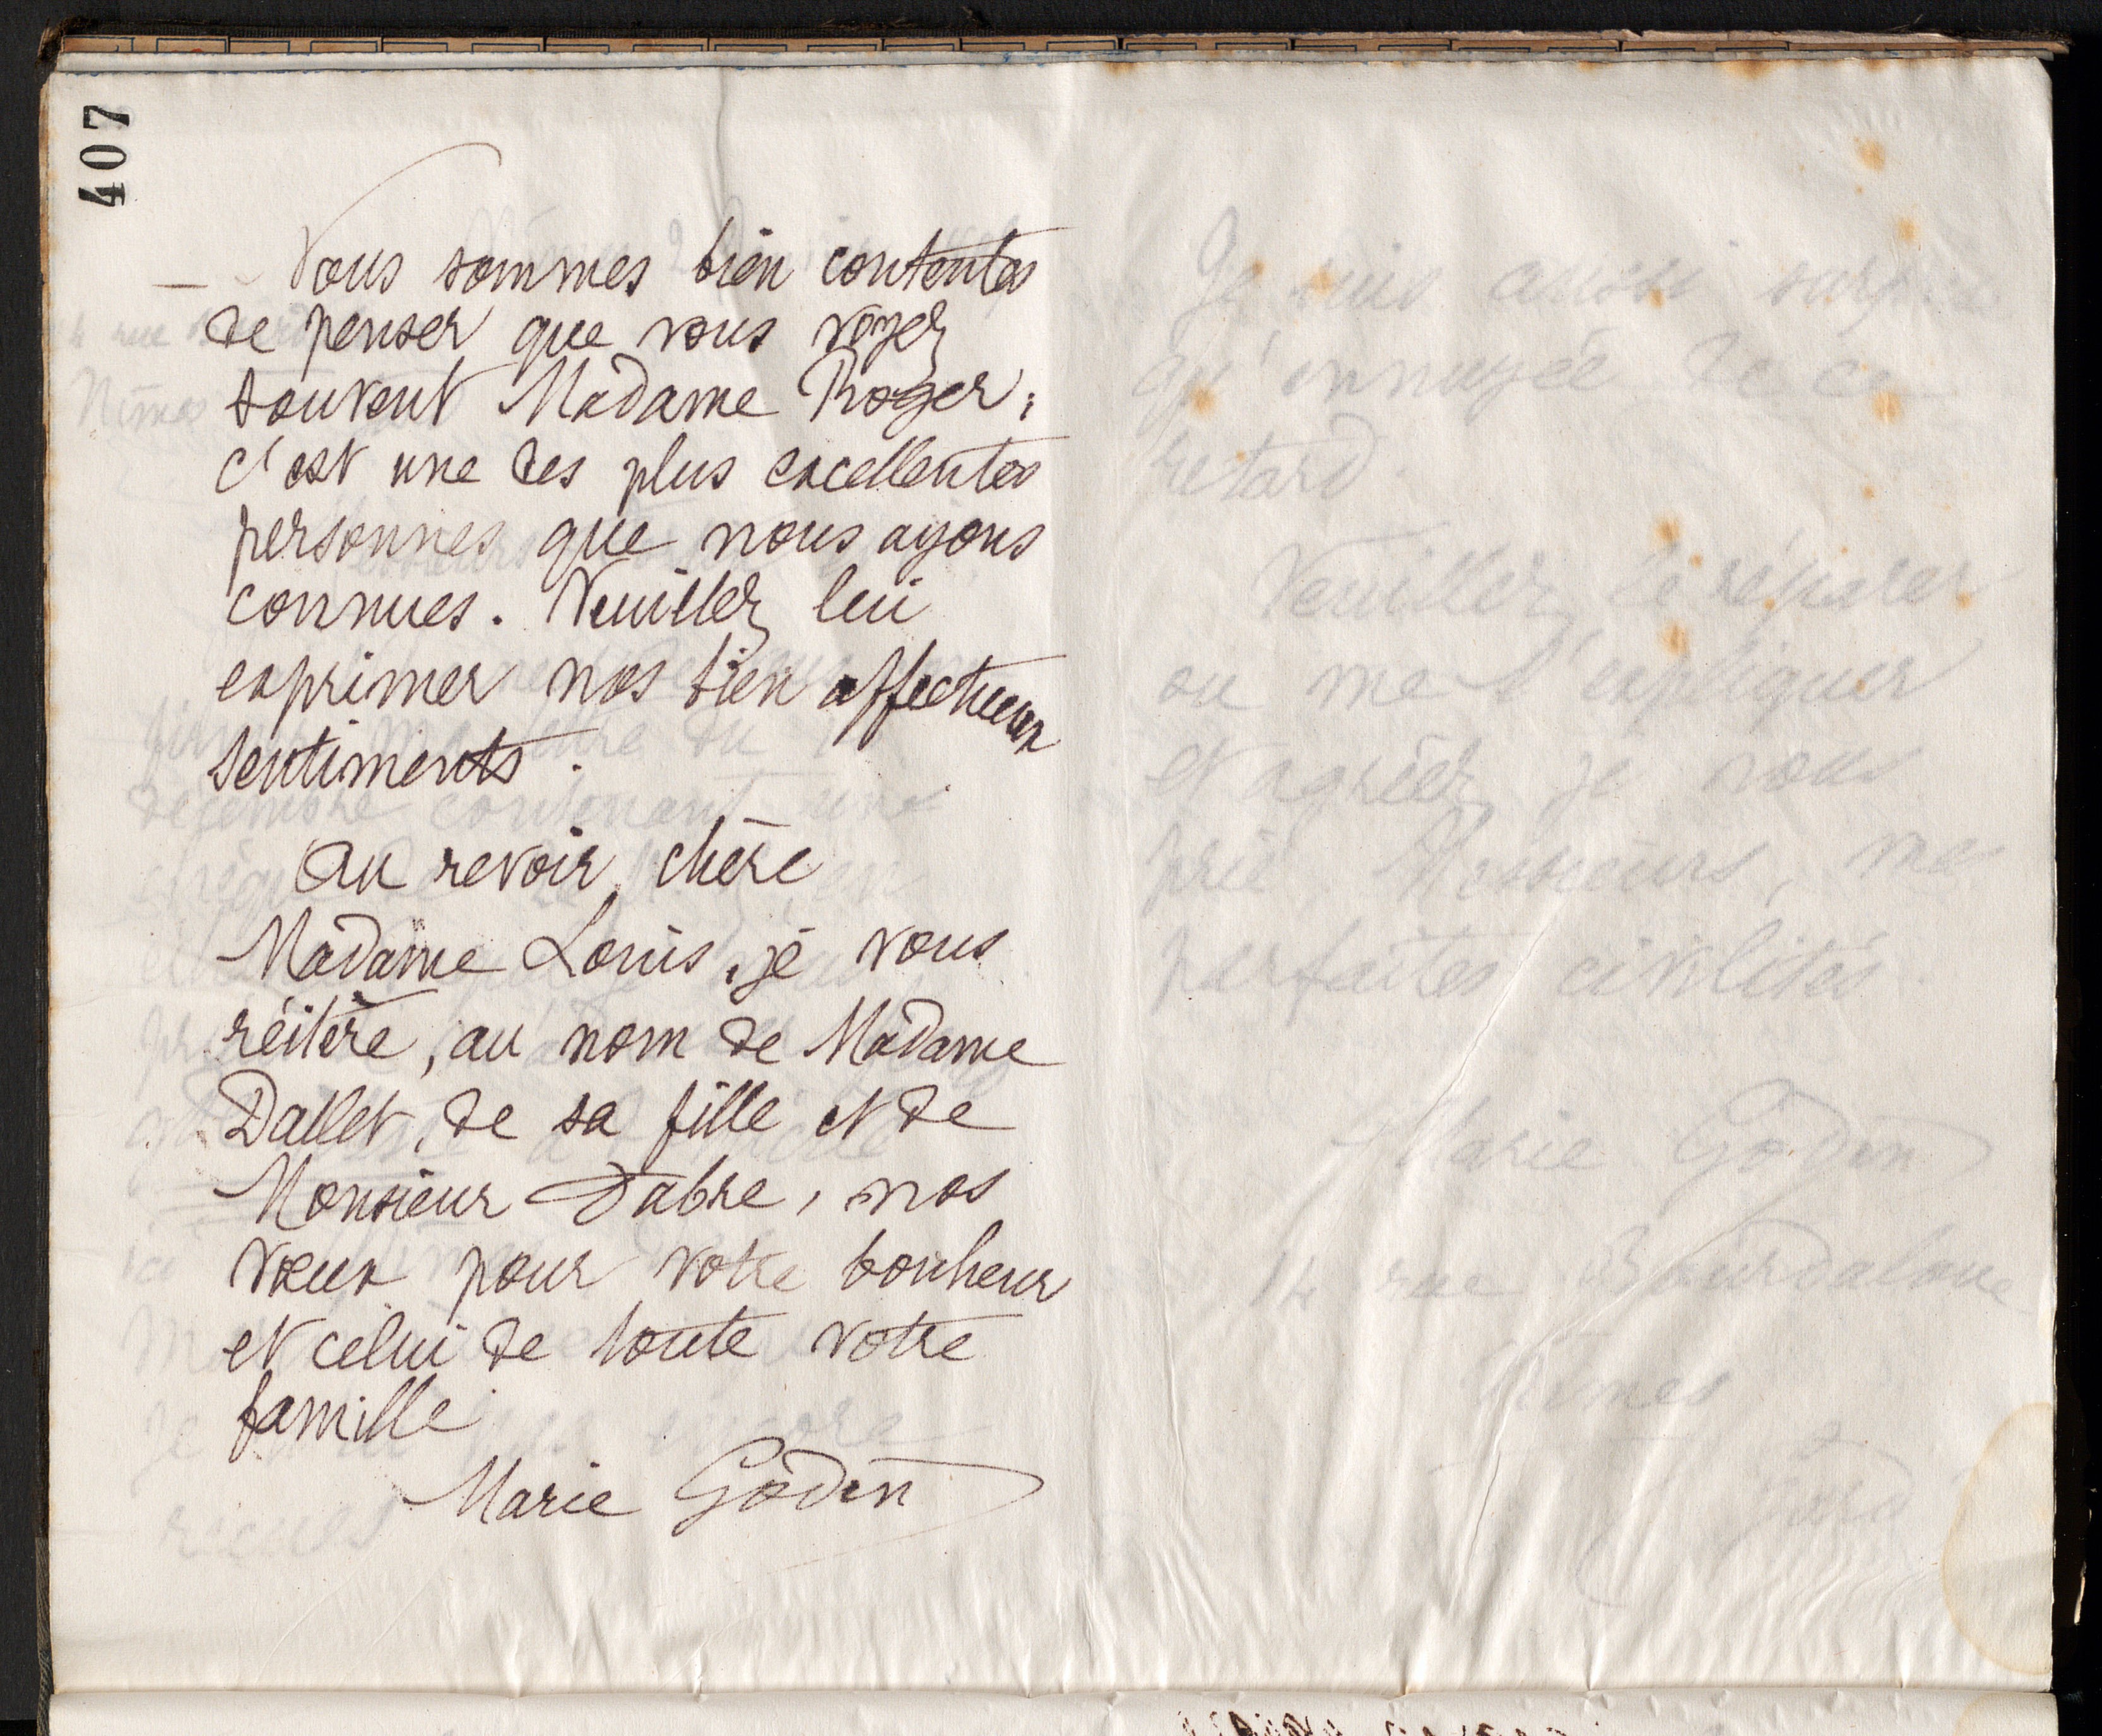 407
Nous sommes bien contentes
de penser que vous voyez
souvent Madame Roger;
c'est une des plus excellentes
personnes que nous ayons
connues. Veuillez lui
exprimer nos bien affectueux
sentiments.
Au revoir, chère
Madame Louis, je vous
réitère, au nom de Madame
Dallet, de sa fille et de
Monsieur Fabre, nos
vœux pour votre bonheur
et celui de toute votre
famille.
Marie Godin
Je suis aussi
qu'ennuyée de ce
retard.
Veuillez le réparer
ou me l'expliquer
et agréez je vous
prie Messieurs, mes
parfaites civilités.
Marie Godin
14 rue Bourdaloue
Nîmes
Gard